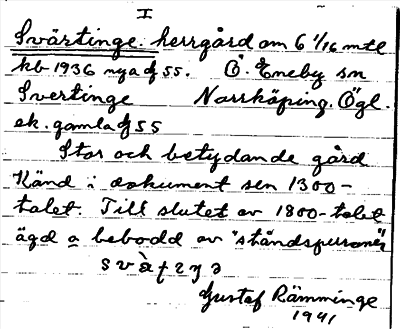 I
Svärtinge. herrgård om 6 1/16 mtl
kb 1936 nya 55. Ö. Eneby sn
Svertinge Norrköping. Ögl.
ek. gamla 55
Stor och betydande gård
Känd i dokument sen 1300-
talet. Till slutet av 1800-talet
ägd o bebodd av "ståndspersoner"
Gustaf Rämminge
1941